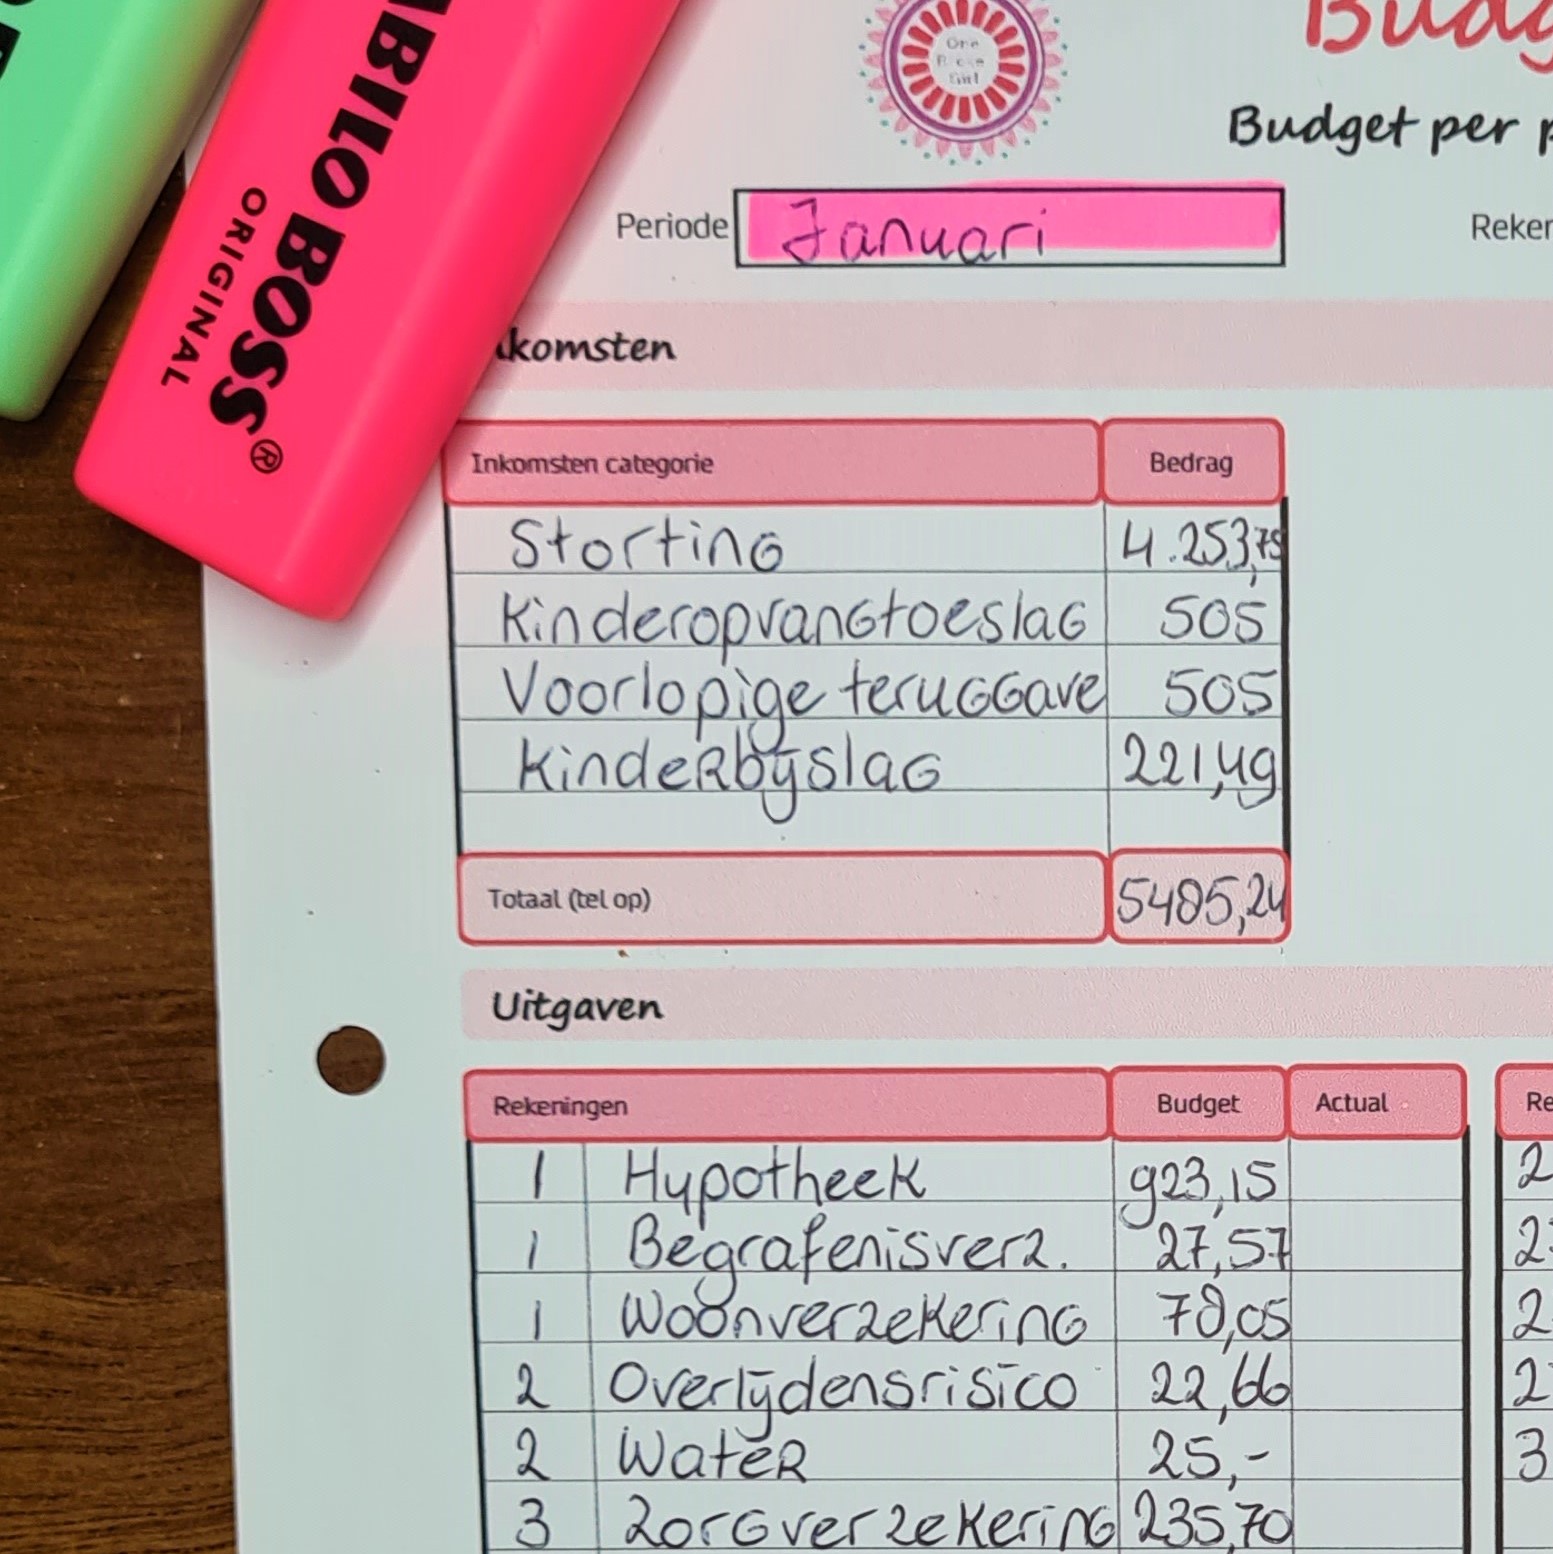 ABILO BOSS®
ORIGINAL
Budg
Budget per p
Periode Januari Reken
nkomsten
Inkomsten categorie Bedrag
Storting 4.253,75
Kinderopvangtoeslag 505
Voorlopige teruggave 505
Kinderbijslag 221,49
Totaal (tel op) 5485,24
Uitgaven
Rekeningen Budget Actual Re
1 Hypotheek 923,15 2
1 Begrafenisverz. 27,57 2
1 Woonverzekering 78,05 2
2 Overlijdensrisico 22,66 2
2 Water 25,- 3
3 Zorgverzekering 235,70